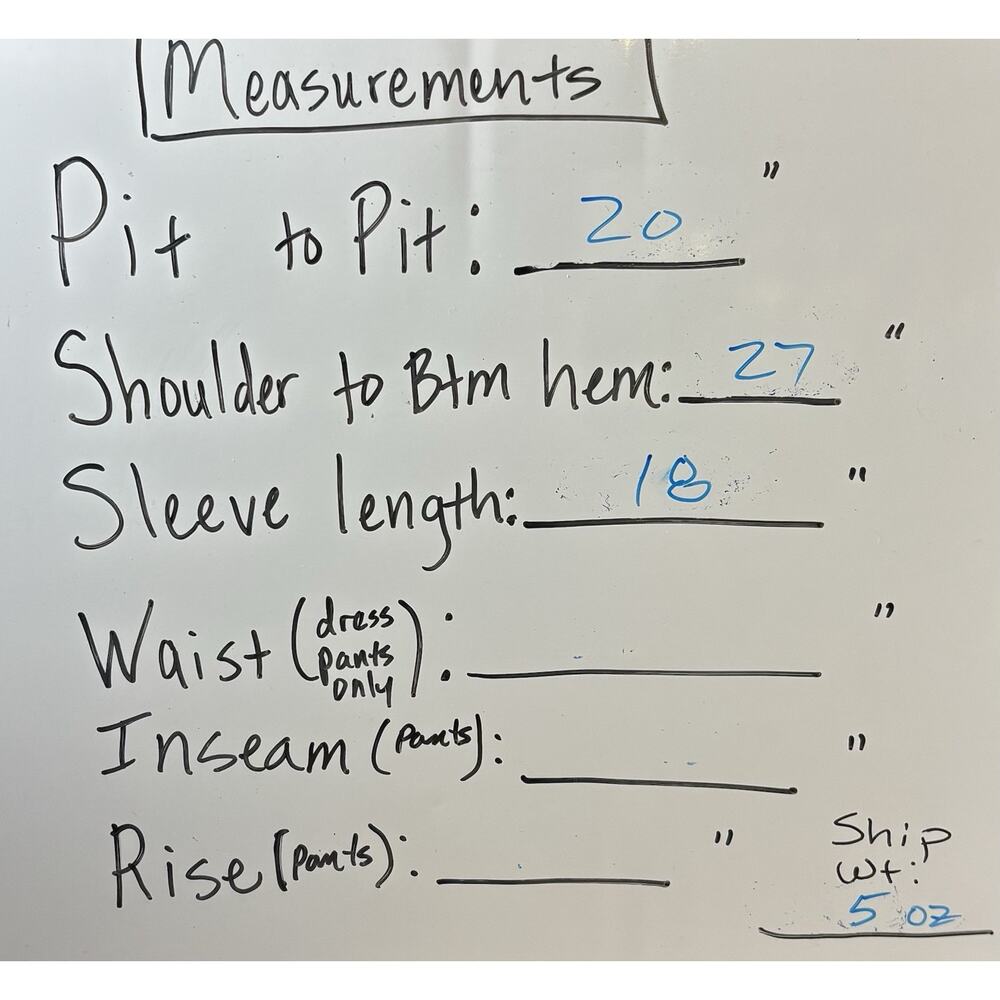 Measurements
Pit to Pit: 20 "
Shoulder to Btm hem: 27 "
Sleeve length: 18 "
Waist (dress pants only): "
Inseam (pants): "
Rise (pants): "
Ship
Wt:
5 oz